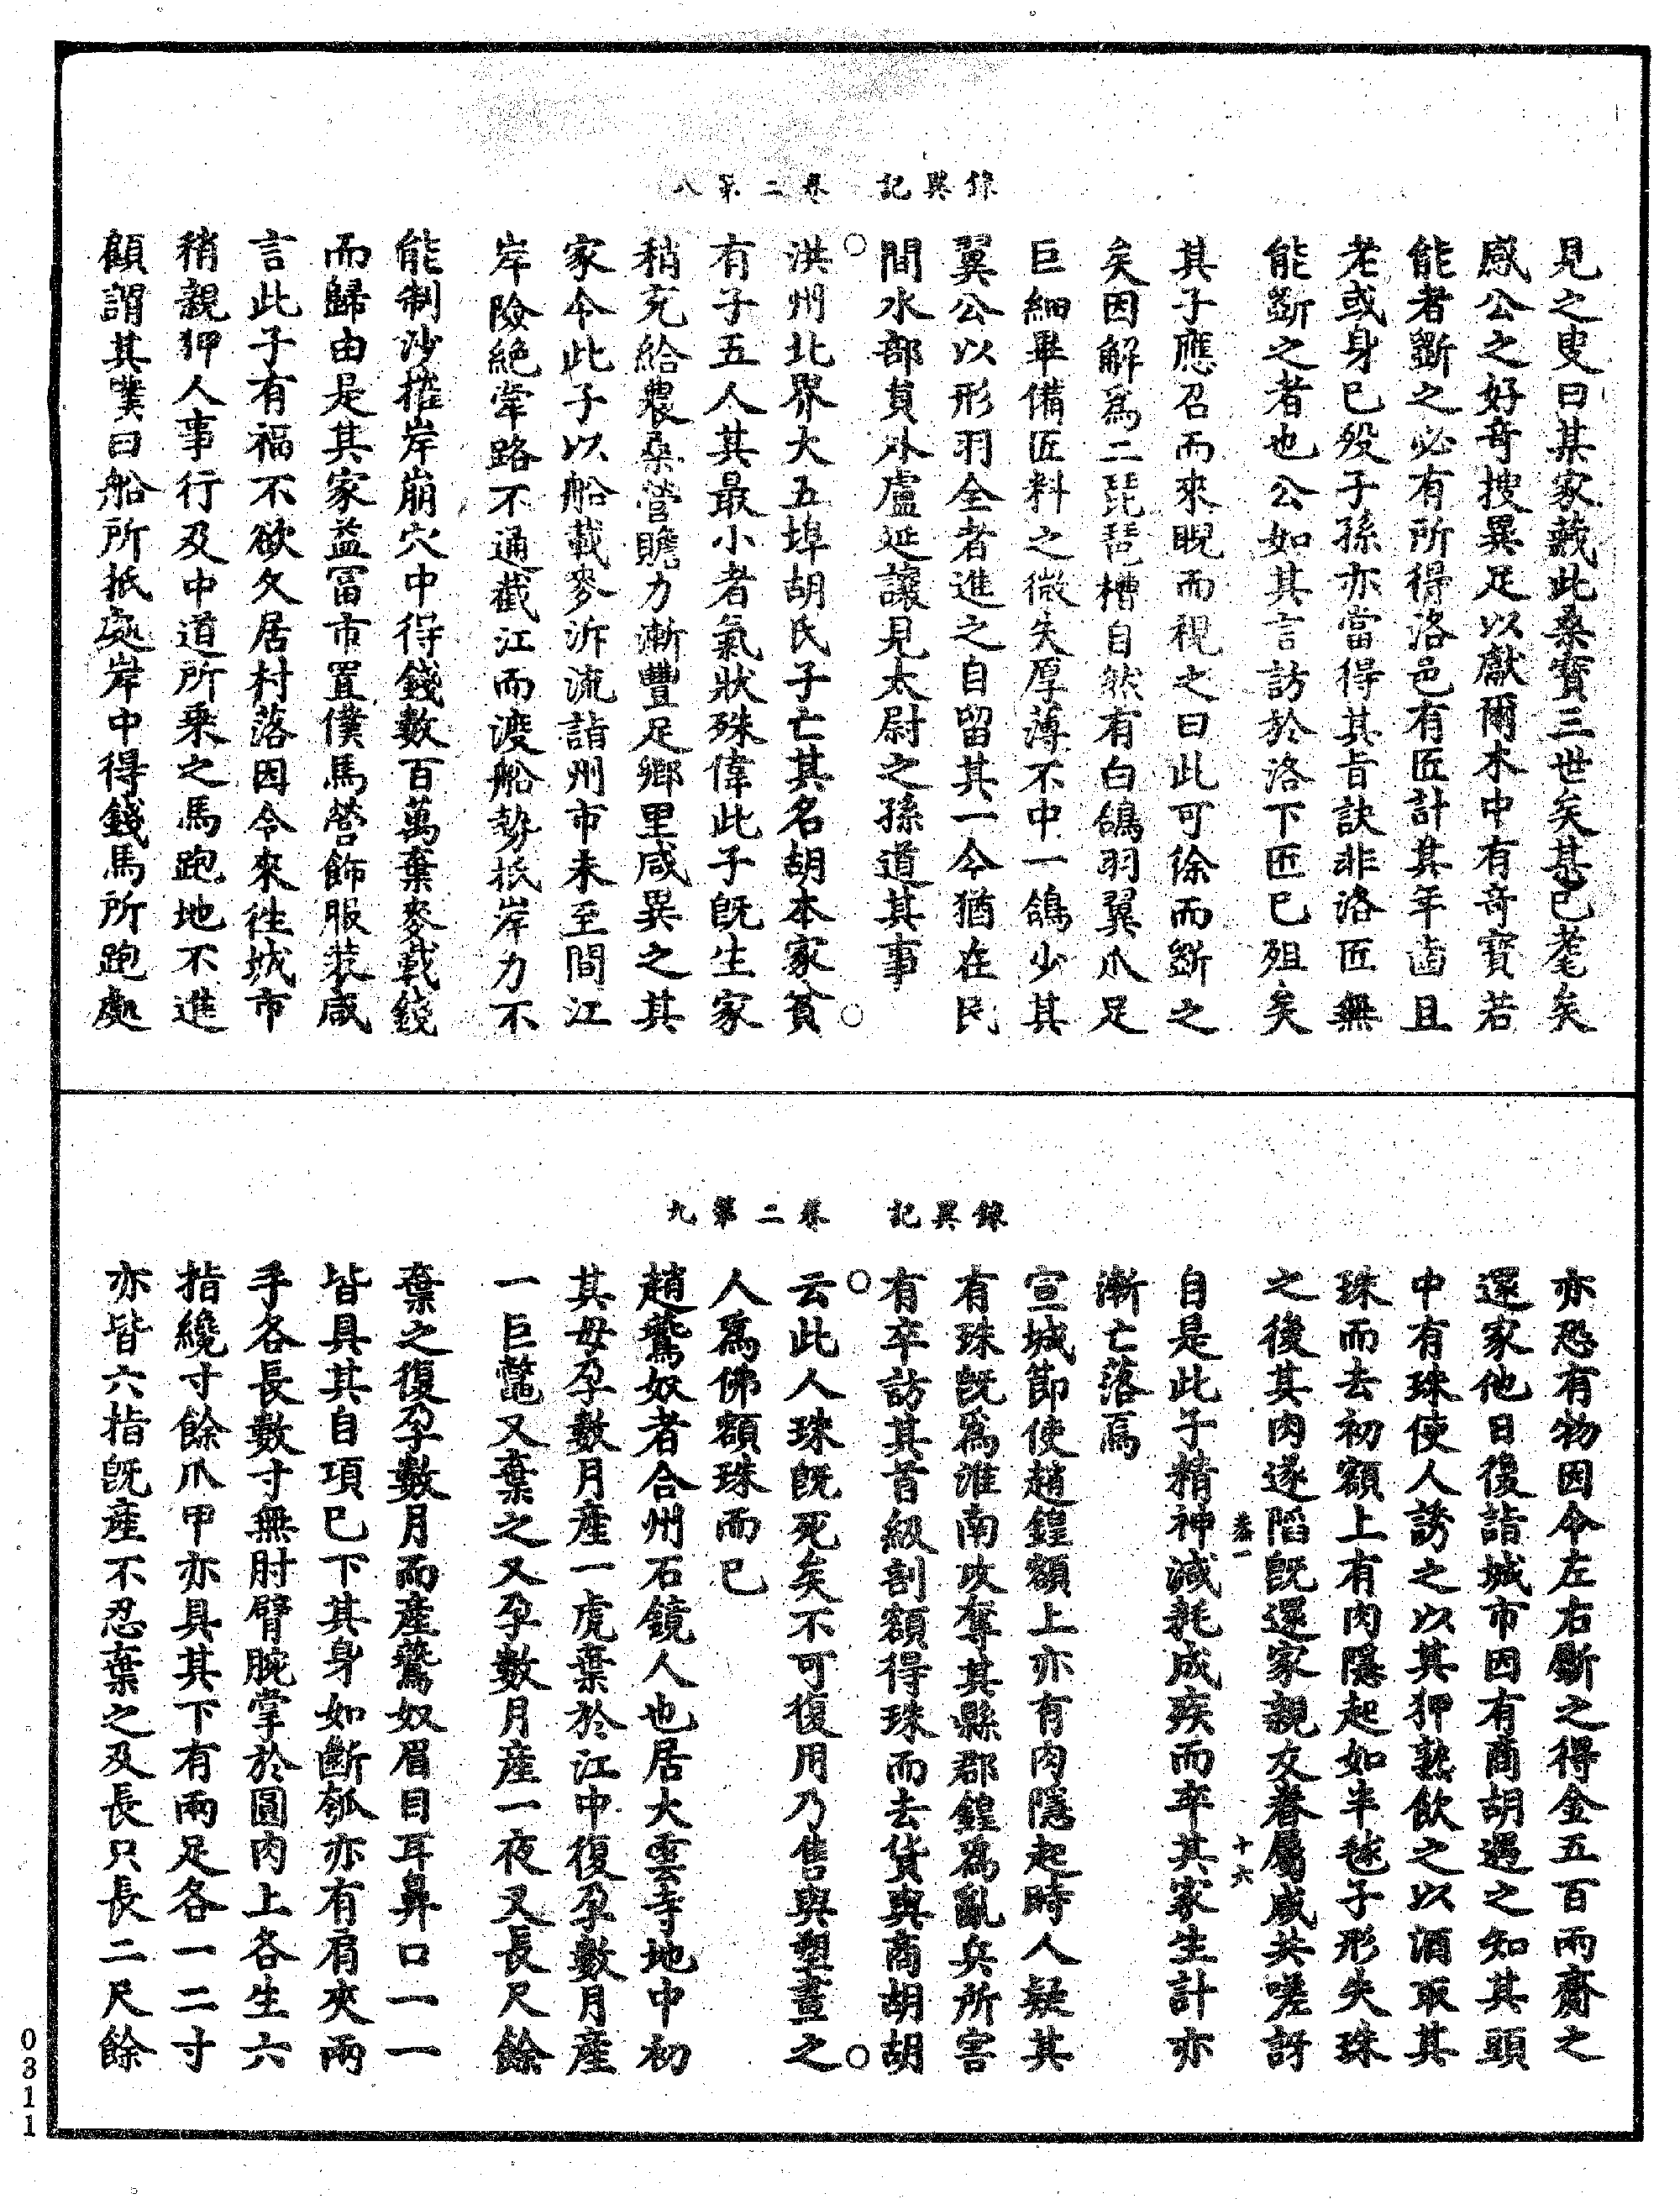 錄異記　卷二第八
見之叟曰某家藏此桑寶三世矣某已耄矣
感公之好奇搜異足以獻爾木中有奇寶若
能者斷之必有所得洛邑有匠計其年齒且
老或身已歿子孫亦當得其旨訣非洛匠無
能斷之者也公如其言訪於洛下匠已殂矣
其子應召而來睨而視之曰此可徐而斷之
矣因解為二琵琶槽自然有白鴿羽翼爪足
巨細畢備匠料之微失厚薄不中一鴿少其
翼公以形羽全者進之自留其一今猶在民
間水部員外盧延讓見太尉之孫道其事
洪州北界大五埠胡氏子亡其名胡本家貧
有子五人其最小者氣狀殊偉此子既生家
稍充給農桑營贍力漸豐足鄉里咸異之其
家令此子以船載麥泝流詣州市未至間江
岸險絕牽路不通截江而渡船勢抵岸力不
能制沙摧岸崩穴中得錢數百萬棄麥載錢
而歸由是其家益富市置僕馬營飾服裝咸
言此子有福不欲久居村落因令來往城市
稍親狎人事行及中道所乘之馬跑地不進
顧謂其僕曰船所抵處岸中得錢馬所跑處
錄異記　卷二第九
亦恐有物因令左右斸之得金五百兩齎之
還家他日復詣城市因有商胡遇之知其頭
中有珠使人誘之以其狎熟飲之以酒取其
珠而去初額上有肉隱起如半毬子形失珠
之後其肉遂陷既還家親友眷屬咸共嗟訝
卷一　十六
自是此子精神減耗成疾而卒其家生計亦
漸亡落焉
宣城節使趙鍠額上亦有肉隱起時人疑其
有珠既為淮南攻奪其縣郡鍠為亂兵所害
有卒訪其首級剖額得珠而去貨與商胡胡
云此人珠既死矣不可復用乃售與塑畫之
人為佛額珠而已
趙鶖奴者合州石鏡人也居大雲寺地中初
其母孕數月產一虎棄於江中復孕數月產
一巨鼈又棄之又孕數月產一夜叉長尺餘
棄之復孕數月而產鶖奴眉目耳鼻口一一
皆具其自項已下其身如斷瓠亦有肩夾兩
手各長數寸無肘臂腕掌於圓肉上各生六
指纔寸餘爪甲亦具其下有兩足各一二寸
亦皆六指既產不忍棄之及長只長二尺餘
0311